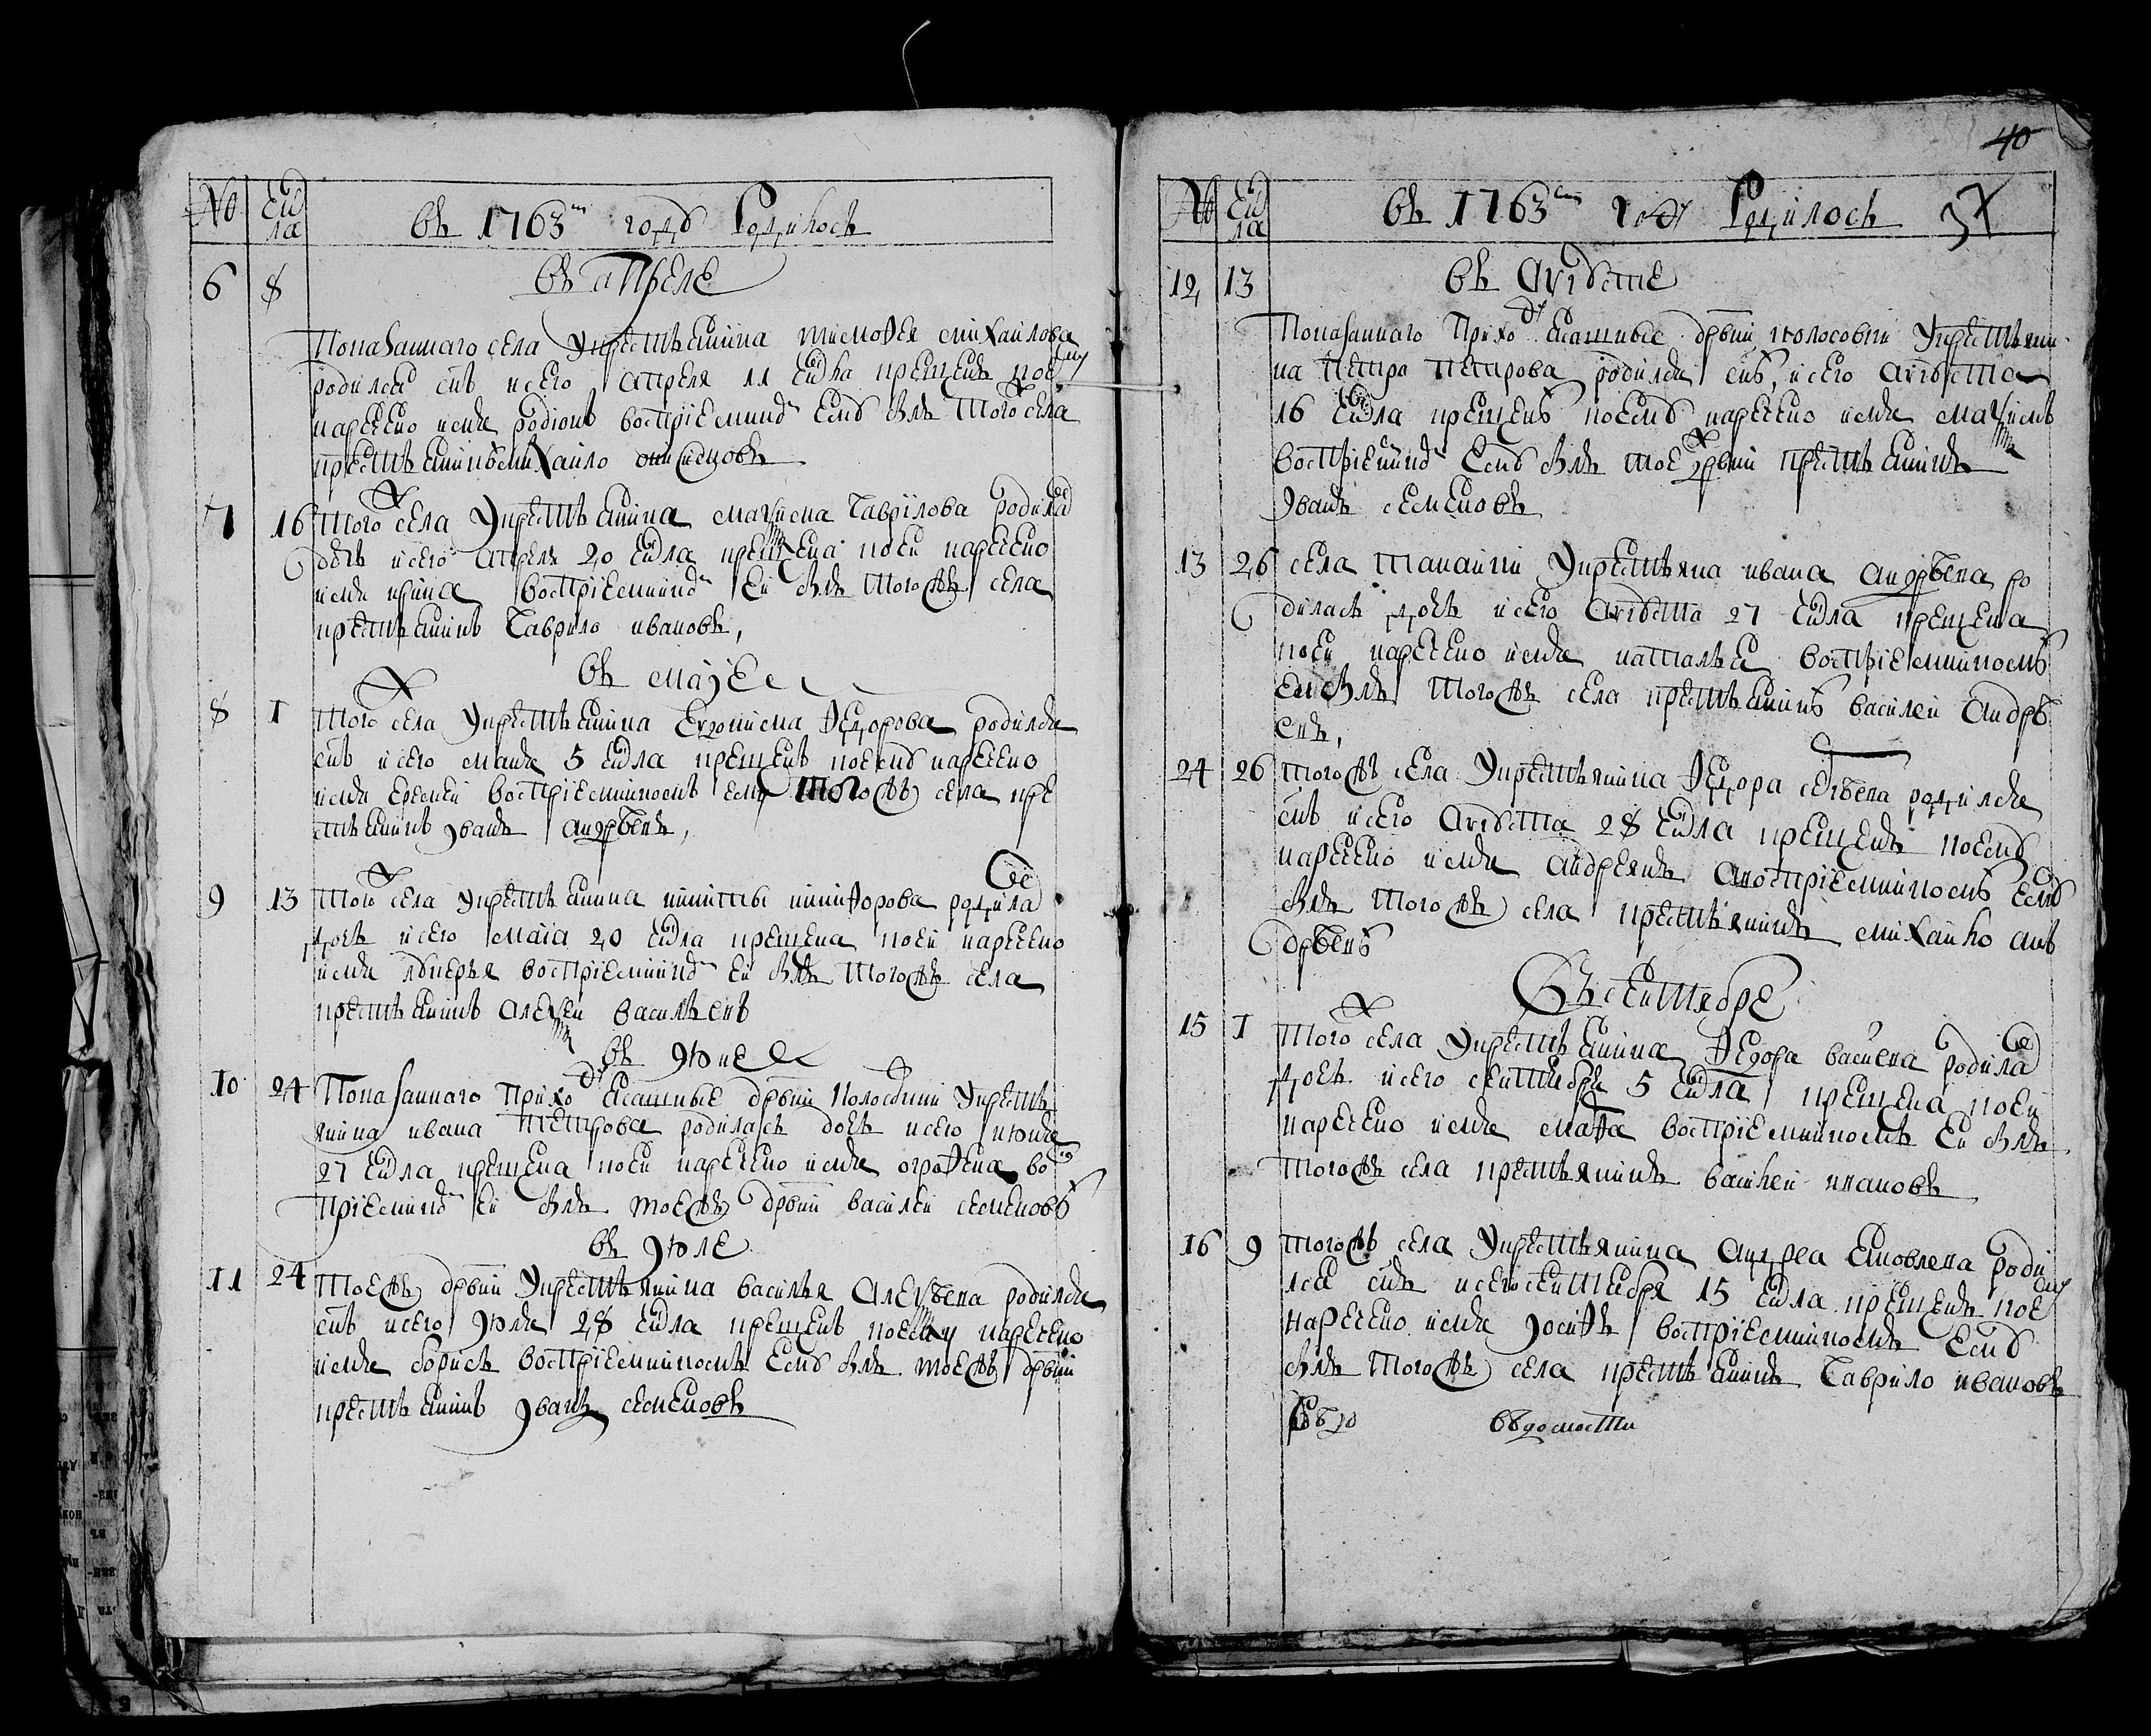 № Чи
сла
въ 1763м году Родилось
въ апреле
6 8
Показаннаго села у крестьянина тимофея михаилова
родился снъ и сего апреля 11 числа крещенъ и ему
наречено имя родионъ восприемник ему былъ того села
крестьянинъ михаило
7 16 того ж села у крестьянина маѯима гаврилова родилася
дочь и сего апреля 20 числа крещена и ей наречено
имя ирина восприемник ей былъ того жъ села
крестьянинъ гаврило ивановъ,
въ маие
8 1 того ж села у крестьянина евдокима федорова родился
снъ и сего маия 5 числа крещенъ и ему наречено
имя еремей восприемникомъ ему того жъ села кре
стьянинъ иванъ андреевъ,
9 13 того ж села у крестьянина никиты никифорова родилася
дочь и сего маиа 20 числа крещена и ей наречено
имя лукерья восприемник ей былъ того жъ села
крестьянинъ алеѯеи васильевъ
въ июне
10 24 Показаннаго приходу ясашные дрвни колосовки у крестья
нина ивана петрова родилась дочь и сего июня
27 числа крещена и ей наречено имя огрофена вос
приемник ей былъ тоежъ дрвни василеи семеновъ
въ июле
11 24 тоежъ дрвни у крестьянина василья алеѯеева родился
снъ и сего июля 28 числа крещенъ и ему наречено
имя борисъ восприемникомъ ему былъ тоежъ дрвни
крестьянинъ иванъ семеновъ
40
№ Чи
сла
въ 1763м году Родилось 37
12 13 въ августе
Показаннаго приходу ясашные дрвни колосовки у крестьяни
на петра петрова родился снъ, и сего августа
16 числа крещенъ и ему наречено имя маѯимъ
восприемник ему былъ тое ж дрвни крестьянинъ
иванъ семеновъ
13 26 села танаики у крестьянина ивана андреева ро
дилась дочь и сего августа 27 числа крещена
и ей наречено имя наталья восприемникомъ
ей былъ того жъ села крестьянинъ василеи андре
евъ,
24 26 того жъ села у крестьянина федора сергеева родился
снъ и сего августа 28 числа крещенъ и ему
наречено имя андреянъ а восприемникомъ ему
былъ того жъ села крестьянинъ михаило ан
дреевъ
Въ сентябре
15 1 того ж села у крестьянина федора василева родилася
дочь и сего сентября 5 числа крещена и ей
наречено имя мафа восприемникомъ ей былъ
того жъ села крестьянинъ василеи ивановъ
16 9 того жъ села у крестьянина андрея яковлева роди
лся снъ и сего сентября 15 числа крещенъ и ему
наречено имя иосифъ восприемникомъ ему
былъ того жъ села крестьянинъ гаврило ивановъ
ведомости